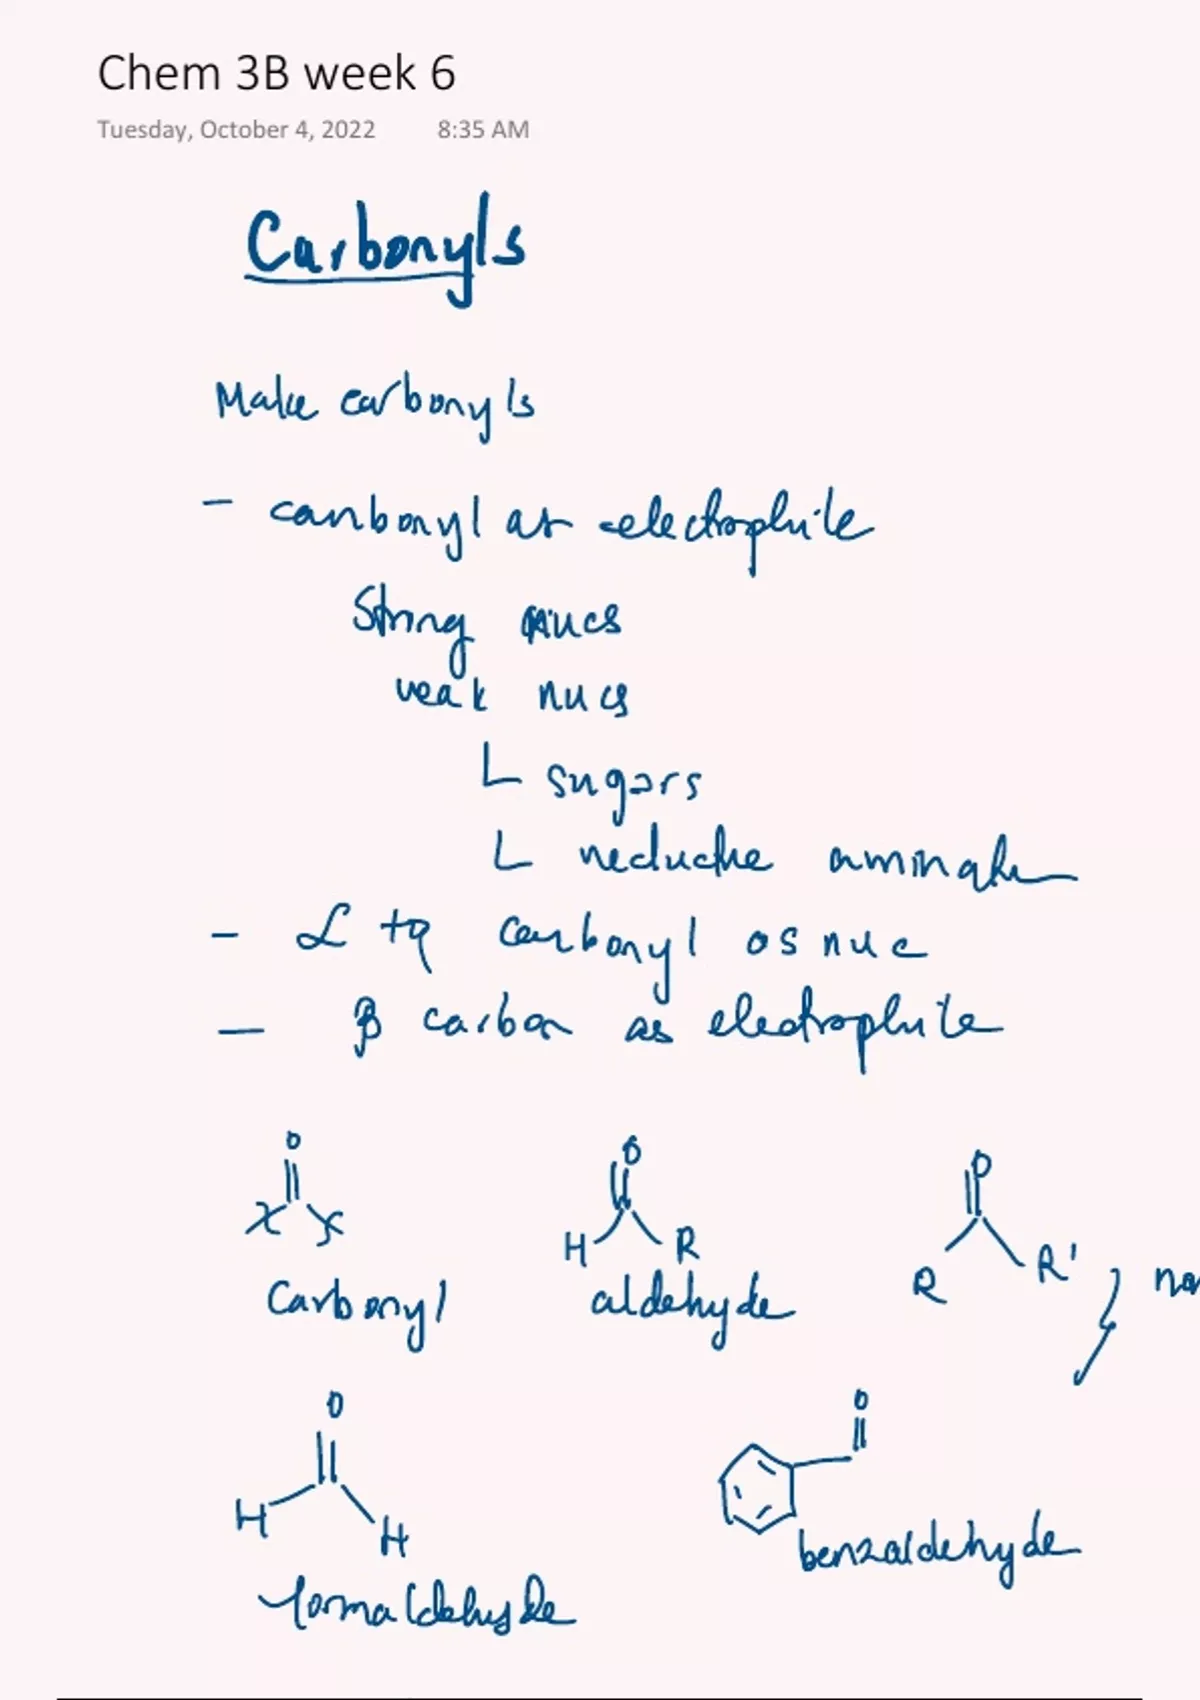 Chem 3B week 6
Tuesday, October 4, 2022 8:35 AM
Carbonyls
Make carbonyls
- carbonyl as electrophile
Strong nucs
weak nucs
L sugars
L reductive
- α to carbonyl as nuc
- β carbon as electrophile
O O O
X X H R R R'
Carbonyl aldehyde
O O
H H
benzaldehyde
formaldehyde